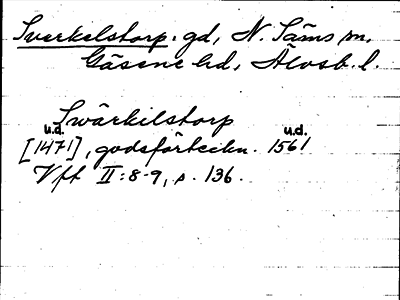 Sverkelstorp: gd, N. Säms sn.
Gäsene hd, Älvsb. l.
Swärkilstorp
u.d. u.d.
[1471], godsförteckn. 1561
Vft II:8-9, s. 136.